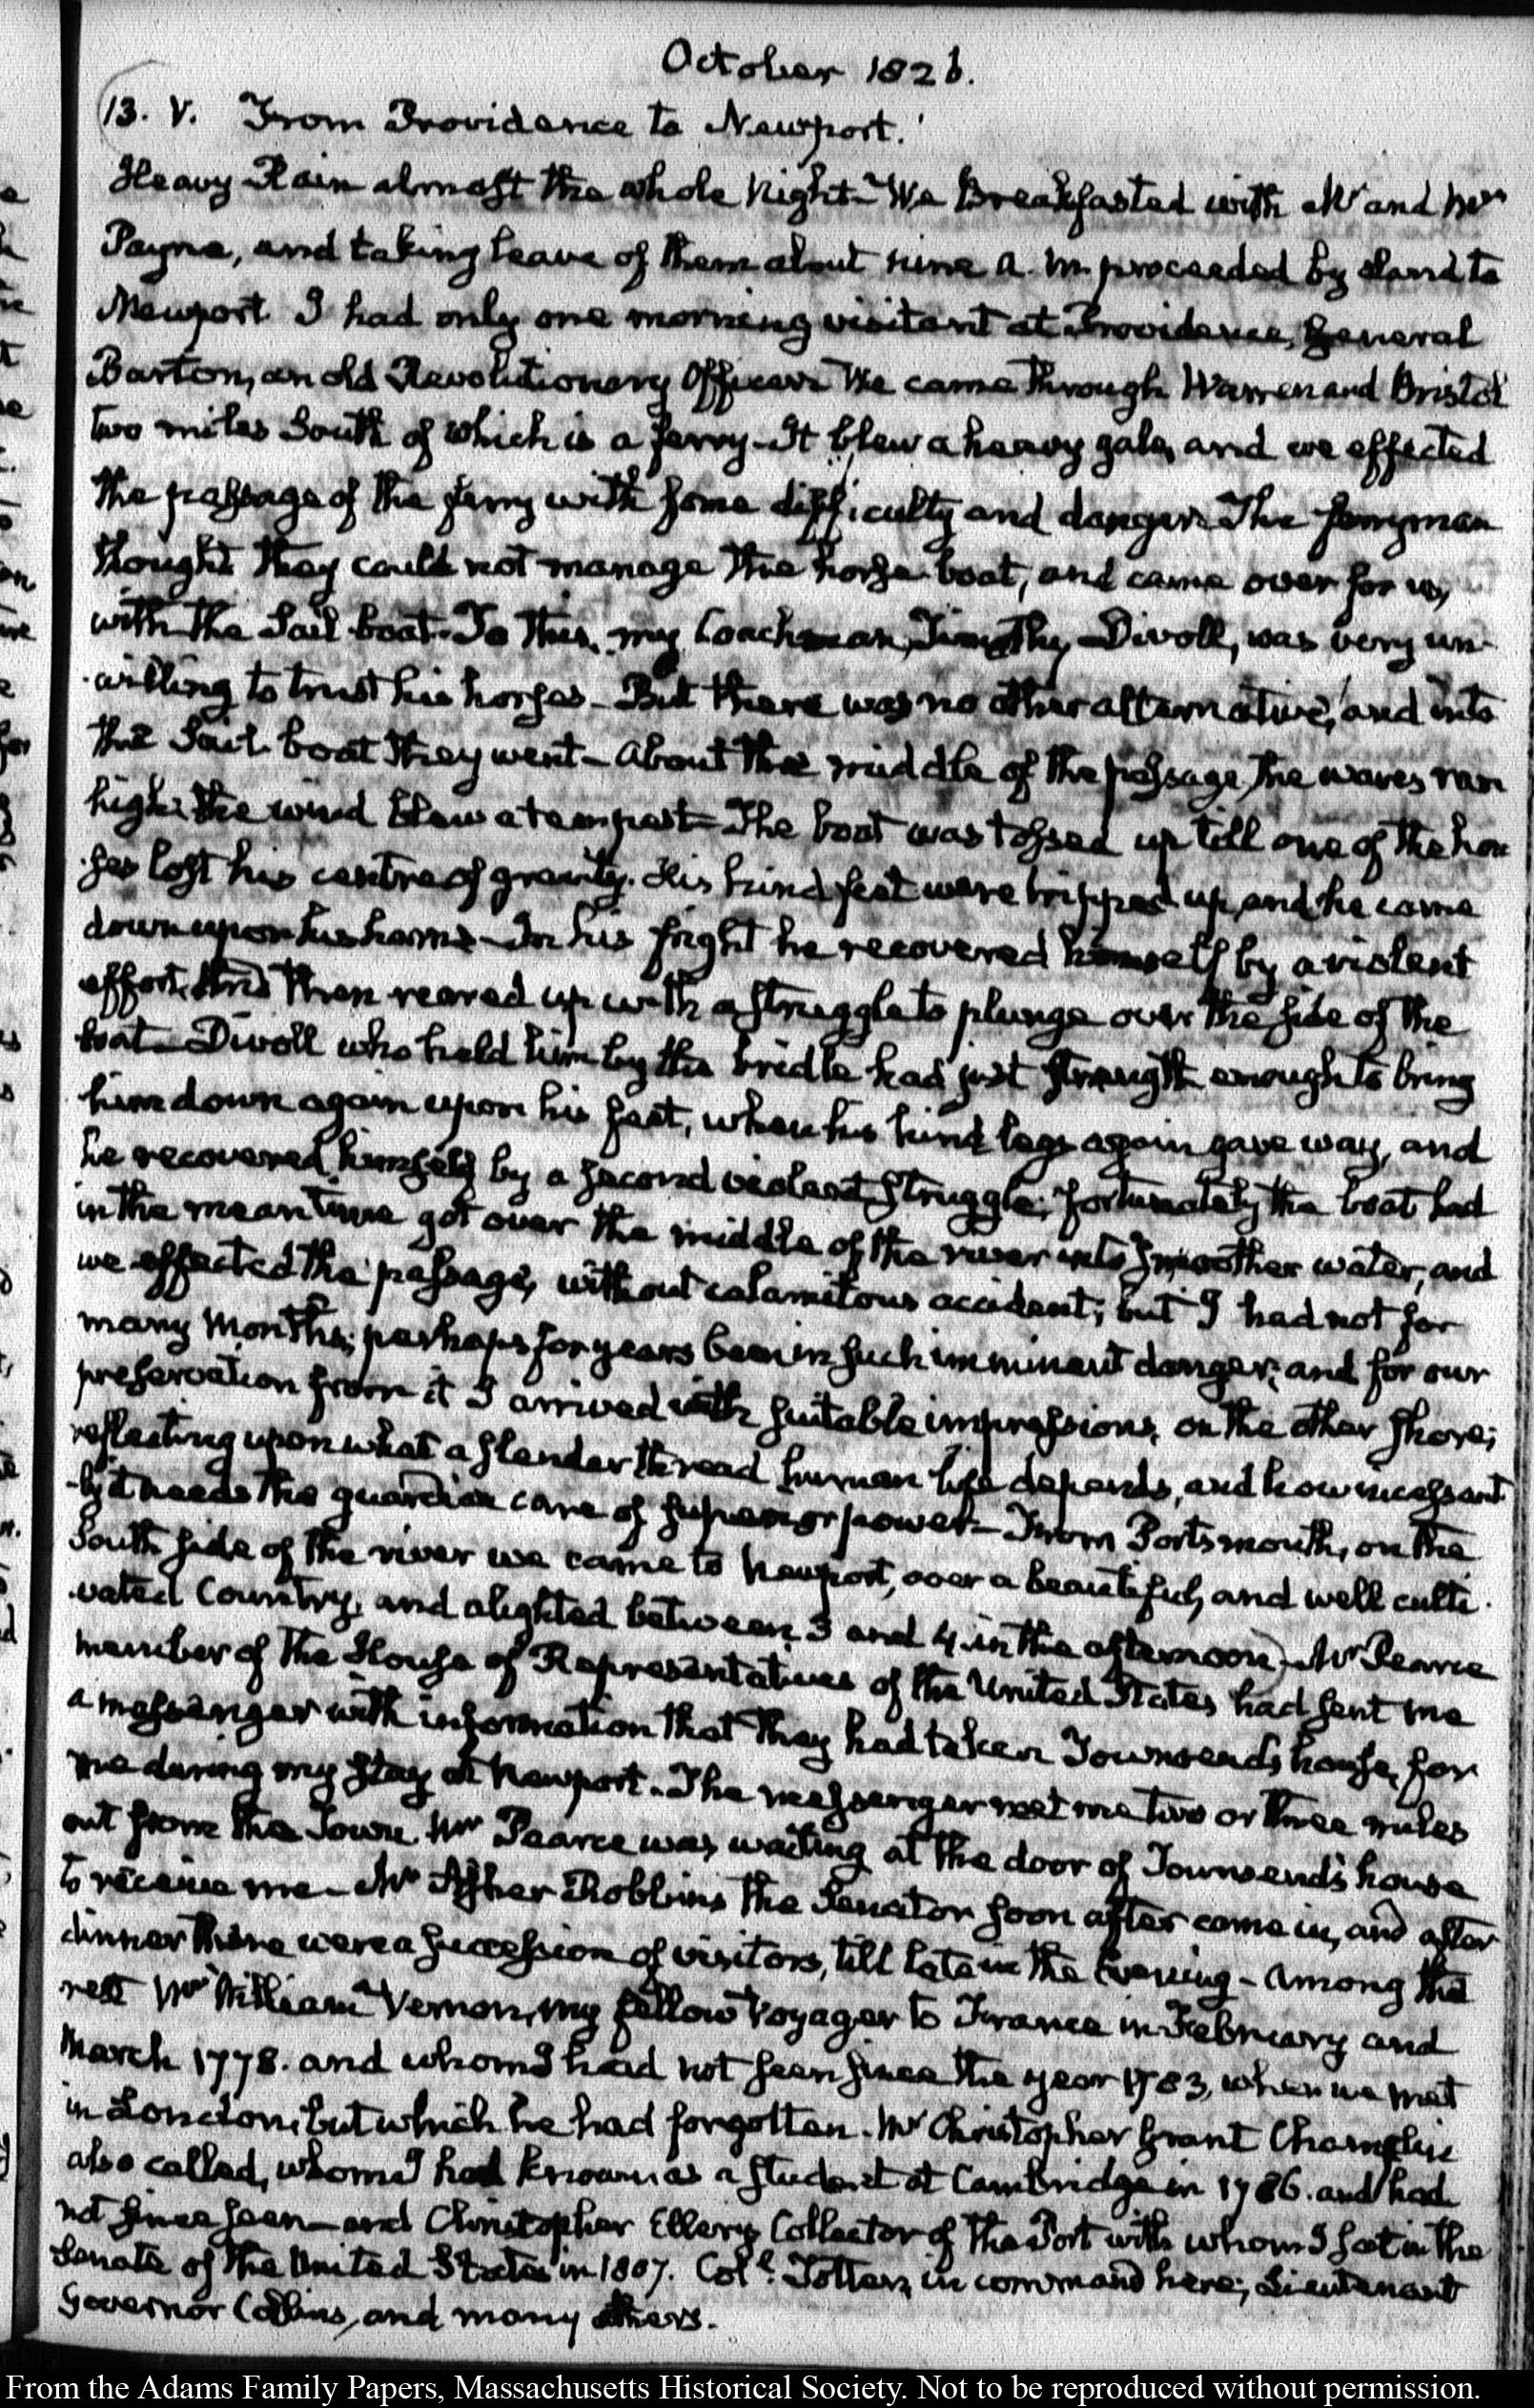 October 1826.
13. V. From Providence to Newport.
Heavy Rain almost the whole Night - We Breakfasted with Mr and Mrs
Payne, and taking leave of them about nine A.M. proceeded by land to
Newport. I had only one morning visitant at Providence, General
Barton, an old Revolutionary Officer. We came through Warren and Bristol
two miles South of which is a ferry - It blew a heavy gale, and we effected
the passage of the ferry with some difficulty and danger. The ferryman
thought they could not manage the horse-boat, and came over for us,
with the Sail-boat. To this, my Coachman, Timothy Divoll, was very un-
-willing to trust his horses - But there was no other alternative, and into
the Sail-boat they went - About the middle of the passage, the waves ran
high. the wind blew a tempest - The boat was tossed up till one of the hor
ses lost his centre of gravity. His hind feet were tripped up, and he came
down upon his hams - In his fright he recovered himself by a violent
effort, and then reared up with a struggle to plunge over the side of the
boat - Divoll who held him by the bridle had just strength enough to bring
him down again upon his feet, when his hind legs again gave way, and
he recovered himself by a second violent struggle; fortunately the boat had
in the mean time got over the middle of the river into smoother water, and
we effected the passage, without calamitous accident; but I had not for
many Months; perhaps for years been in such imminent danger; and for our
preservation from it I arrived with suitable impressions, on the other shore;
reflecting upon what a slender thread human life depends, and how incessant
-ly it needs the guardian care of superior power - From Portsmouth, on the
South side of the river we came to Newport, over a beautiful, and well culti-
-vated Country, and alighted between 3 and 4 in the afternoon - Mr Pearce
member of the House of Representatives of the United States had sent me
a messenger with information that they had taken Townsend's house, for
me during my stay at Newport. The messenger met me two or three miles
out from the Town. Mr Pearce was waiting at the door of Townsend's house
to receive me - Mr Asher Robbins the Senator soon after came in, and after
dinner there were a succession of visitors, till late in the Evening - Among the
rest Mr William Vernon, my fellow Voyager to France in February and
March 1778. and whom I had not seen since the year 1783, when we met
in London; but which he had forgotten. Mr Christopher Grant Champlin
also called, whom I had known as a student at Cambridge in 1786. and had
not since seen - and Christopher Ellery Collector of the Port with whom I sat in the
Senate of the United States in 1807. Coll. Totten, in command here; Lieutenant
Governor Collins, and many others.
From the Adams Family Papers, Massachusetts Historical Society. Not to be reproduced without permission.